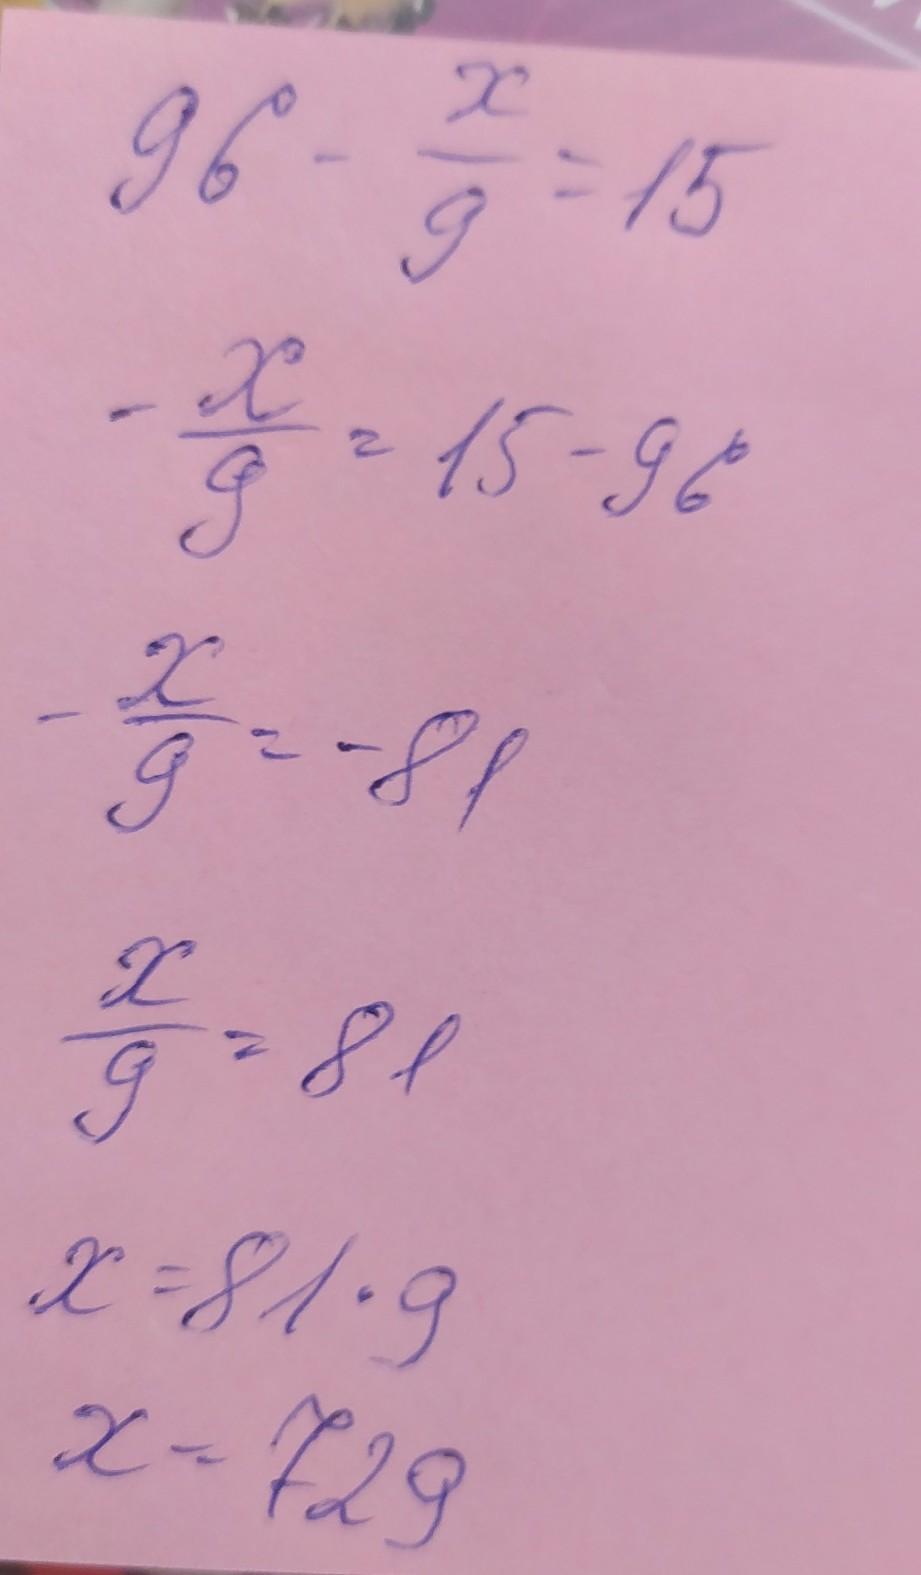 96 - x/9 = 15
- x/9 = 15 - 96
- x/9 = -81
x/9 = 81
x = 81 · 9
x = 729